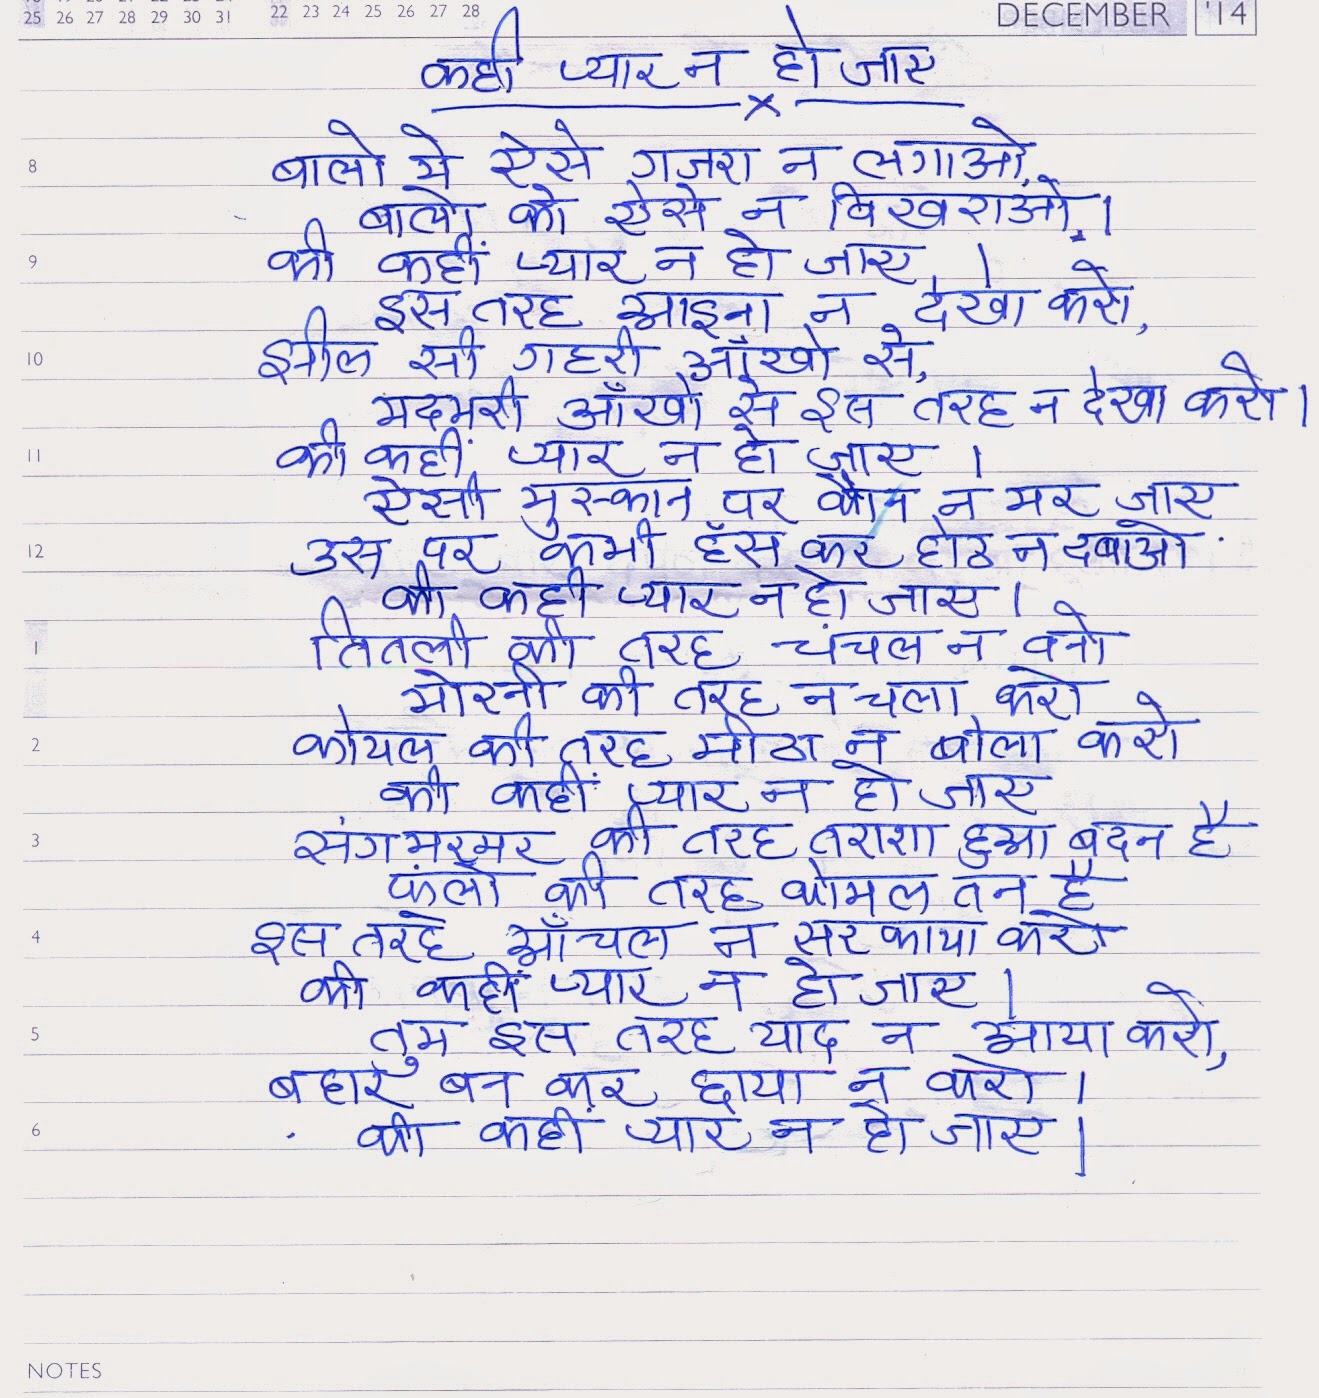 25 26 27 28 29 30 31 22 23 24 25 26 27 28 DECEMBER '14
कही प्यार न हो जाए
x
8 बालो मे ऐसे गजरा न लगाओ,
बालो को ऐसे न बिखराओ,।
9 की कहीं प्यार न हो जाए,।
इस तरह आइना न देखा करो,
10 झील सी गहरी आँखो से,
मदभरी आँखो से इस तरह न देखा करो।
11 की कहीं प्यार न हो जाए।
ऐसी मुस्कान पर कौन न मर जाए
12 उस पर कभी हँस कर होठ न दबाओ
की कही प्यार न हो जाए।
1 तितली की तरह चंचल न बनो
मोरनी की तरह न चला करो
2 कोयल की तरह मीठा न बोला करो
की कहीं प्यार न हो जाए
3 संगमरमर की तरह तराशा हुआ बदन है
की तरह कोमल तन है
4 इस तरह आँचल न सरकाया करो
की कहीं प्यार न हो जाए।
5 तुम इस तरह याद न आया करो,
बहार बन कर छाया न करो।
6 की कहीं प्यार न हो जाए।
NOTES